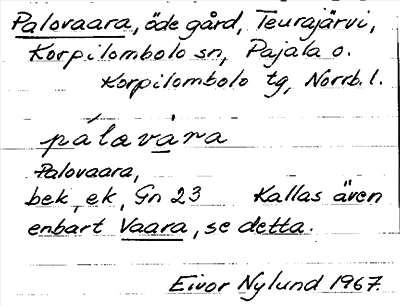 Palovaara, öde gård, Teurajärvi,
Korpilombolo sn, Pajala o.
Korpilombolo tg, Norrb. l.
pálavára
Palovaara,
bek, ek, Gn 23 Kallas även
enbart Vaara, se detta.
Eivor Nylund 1967.